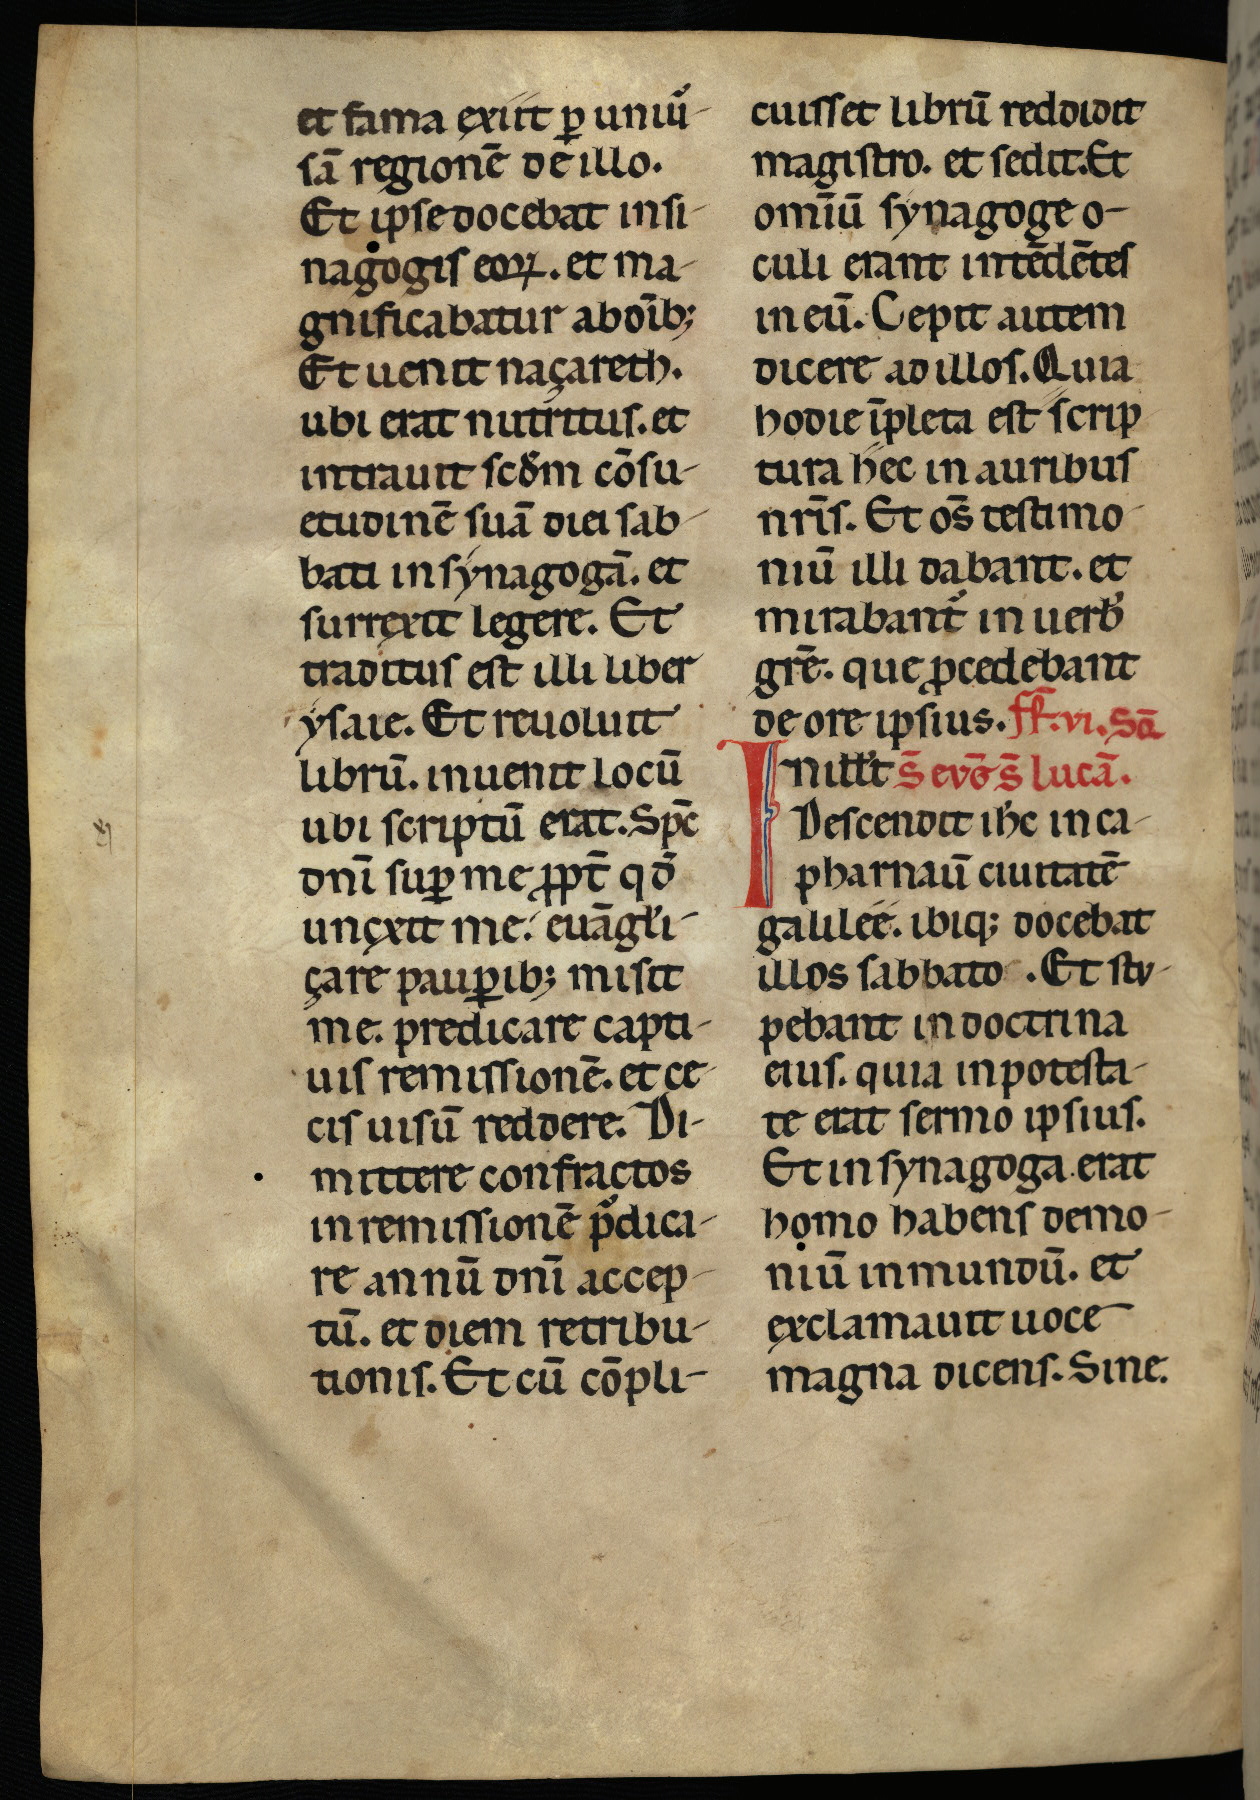 et fama exiit ꝑ uniũ-
sã regionẽ de illo.
Et ipse docebat in si-
nagogis eoꝝ. et ma-
gnificabatur ab oĩb;
Et uenit naçareth.
ubi erat nutritus. et
intrauit scd̃m cõsu-
etudinẽ suã diei sab-
bati in synagogã. et
surrexit legere. Et
traditus est illi liber
ysaie. Et reuoluit
librũ. inuenit locũ
ubi scriptũ erat. Sp̃c
dnĩ suꝑ me ꝓpt̃ qđ
unxit me. euãgłi-
çare pauꝑib; misit
me. predicare capti-
uis remissionẽ. et ce-
cis uisũ reddere. Di-
mittere confractos
in remissionẽ p̃dica-
re annũ dnĩ accep-
tũ. et diem retribu-
tionis. Et cũ cõpli-
cuisset librũ reddidit
magistro. et sedit. Et
omĩũ synagoge o-
culi erant intẽdẽtes
in eũ. Cepit autem
dicere ad illos. Quia
hodie ĩpleta est scrip
tura hec in auribus
nrĩs. Et oS̃ testimo-
niũ illi dabant. et
mirabant̃ in uerb̃
grẽ. que ꝓcedebant
de ore ipsius. f̃r. vi. Sã
In iłłt s̃ evg̃ s̃ lucã.
Descendit ih̃c in ca-
pharnaũ ciuitatẽ
galilee. ibiq; docebat
illos sabbato. Et stv-
pebant in doctrina
eius. quia in potesta-
te erat sermo ipsius.
Et in synagoga erat
homo habens demo-
niũ inmundũ. et
exclamauit uoce
magna dicens. Sine.